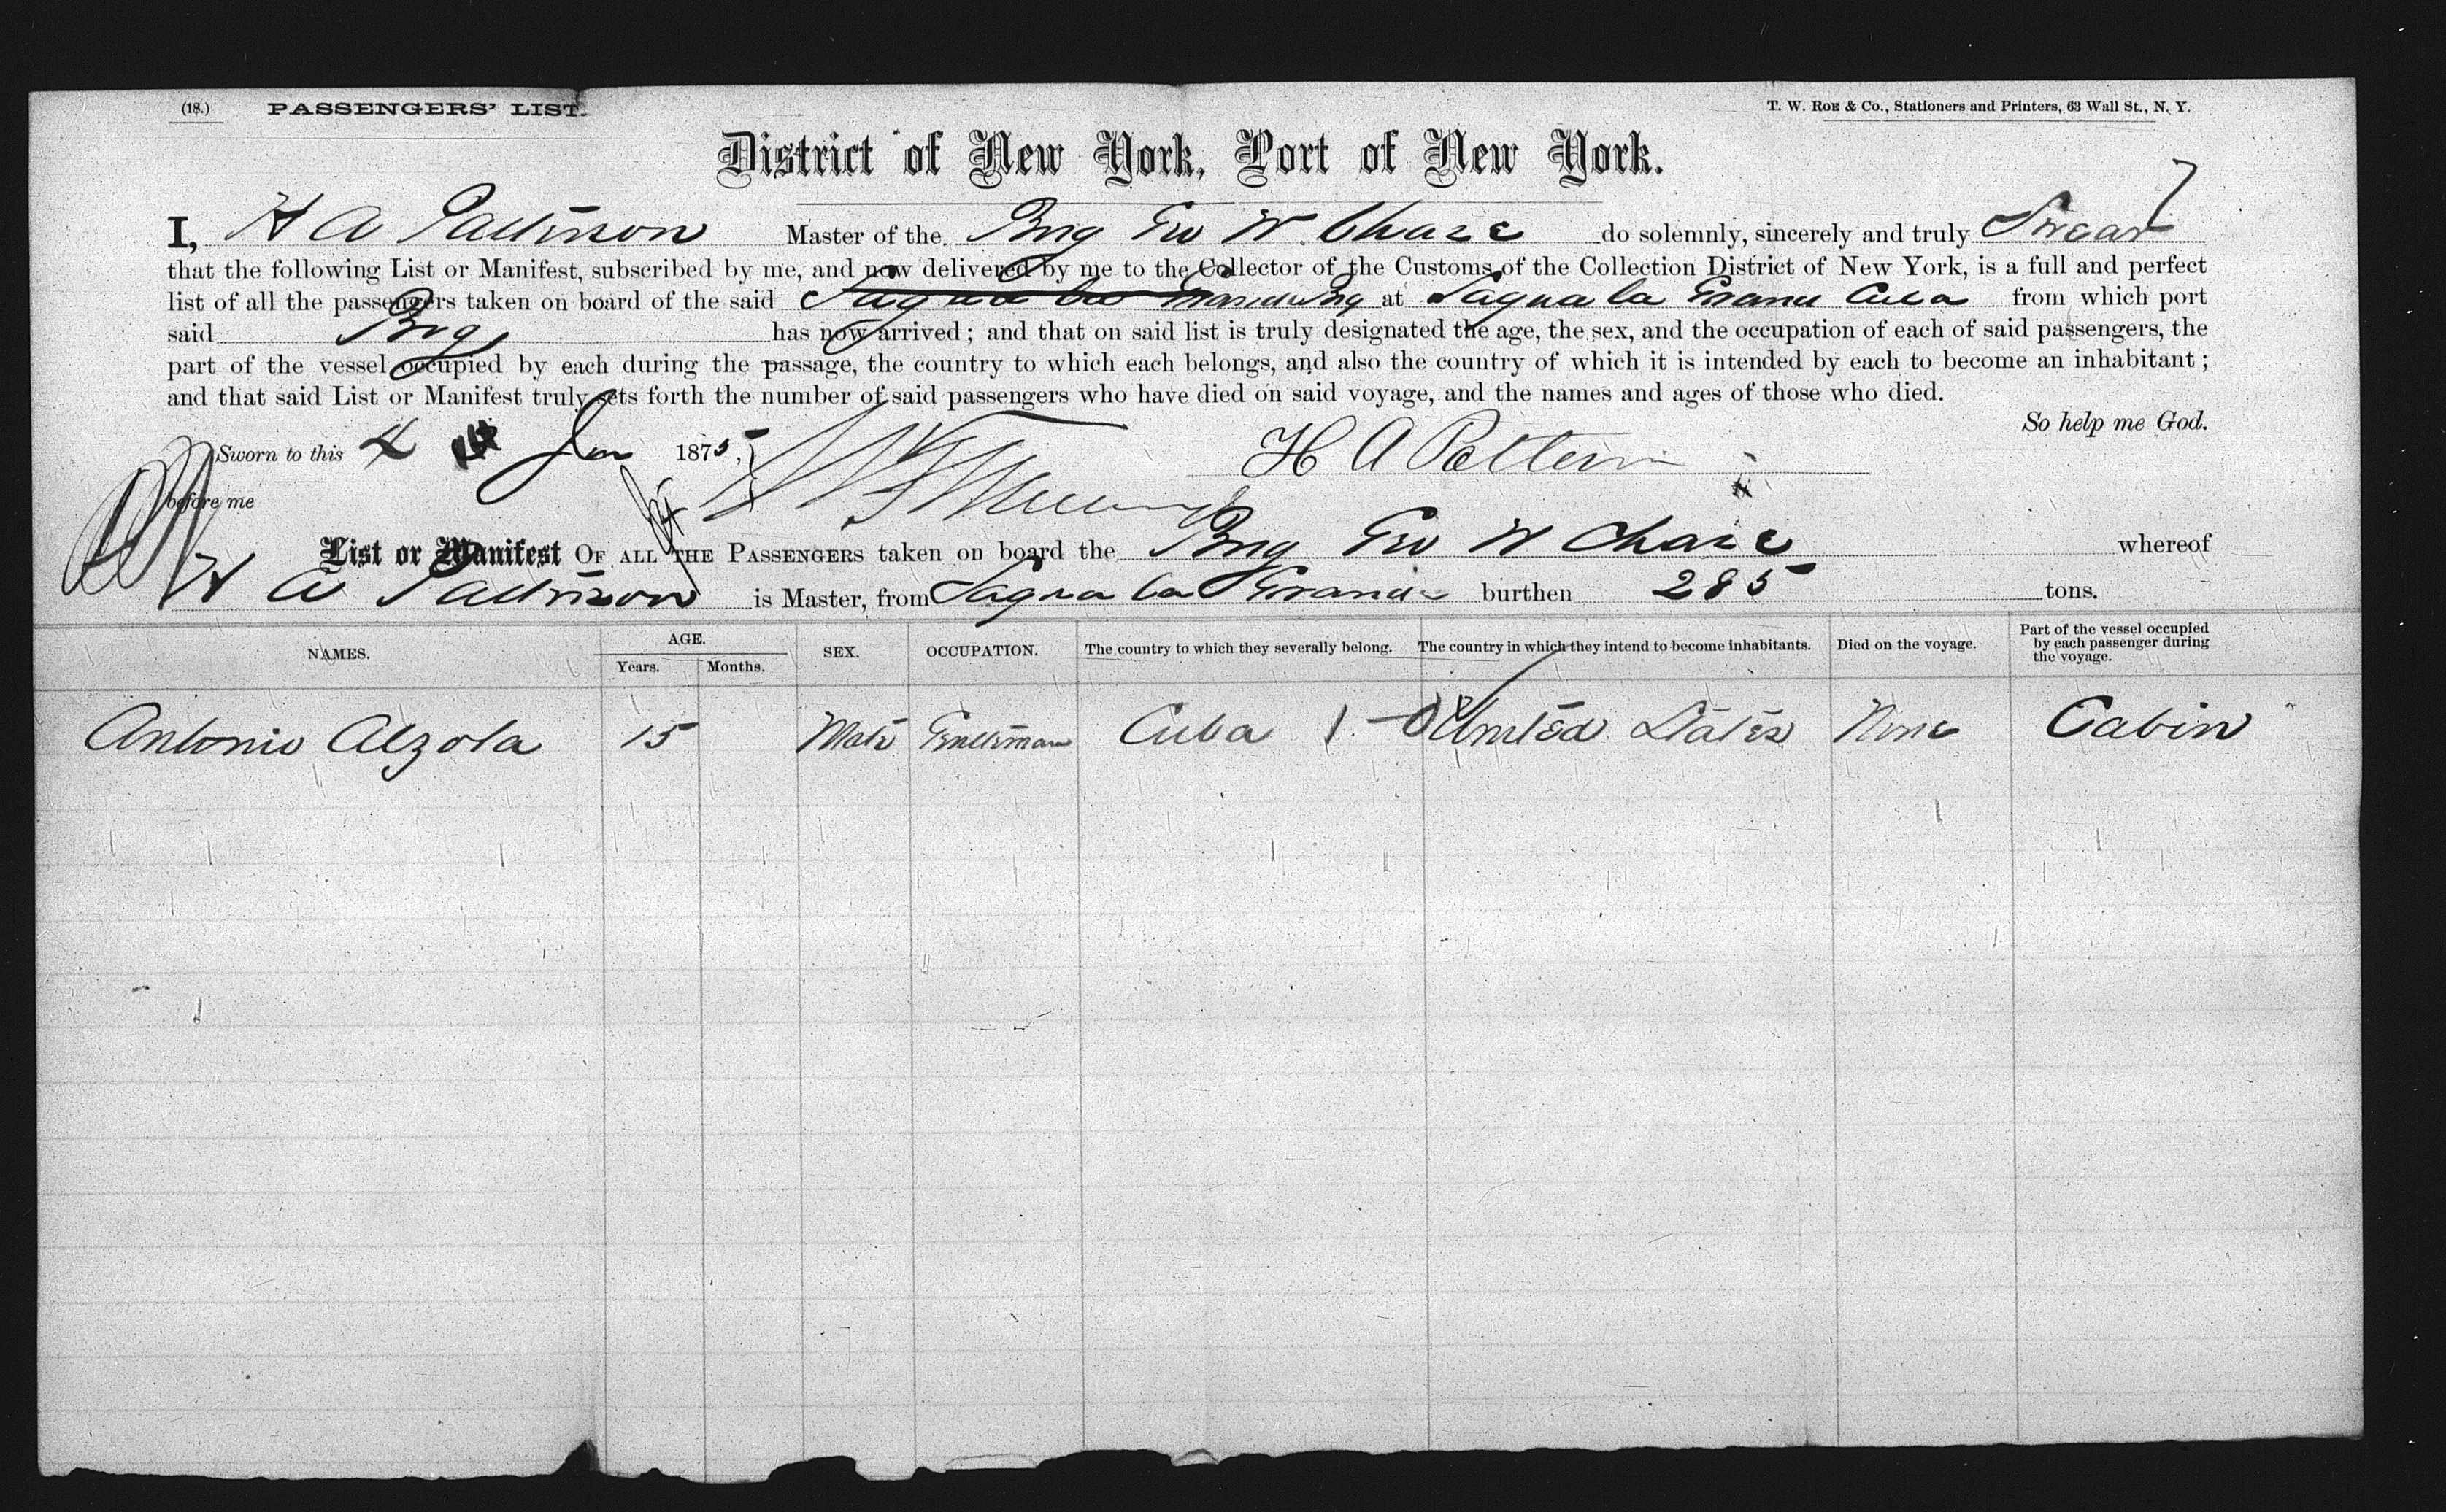 (18.) PASSENGERS' LIST. T. W. ROE & Co., Stationers and Printers, 63 Wall St., N. Y.
District of New York, Port of New York.
I, H A Patterson Master of the Brig Geo W. Chase do solemnly, sincerely and truly Swear
that the following List or Manifest, subscribed by me, and now delivered by me to the Collector of the Customs of the Collection District of New York, is a full and perfect
list of all the passengers taken on board of the said Sagua la Grande Brig at Sagua la Grand Cuba from which port
said Brig has now arrived; and that on said list is truly designated the age, the sex, and the occupation of each of said passengers, the
part of the vessel occupied by each during the passage, the country to which each belongs, and also the country of which it is intended by each to become an inhabitant;
and that said List or Manifest truly sets forth the number of said passengers who have died on said voyage, and the names and ages of those who died.
So help me God.
Sworn to this 4 Jan 1875, H A Patterson
before me
List or Manifest OF ALL THE PASSENGERS taken on board the Brig Geo W Chase whereof
H A Patterson is Master, from Sagua la Grande burthen 285 tons.
NAMES. AGE. Years. Months. SEX. OCCUPATION. The country to which they severally belong. The country in which they intend to become inhabitants. Died on the voyage. Part of the vessel occupied by each passenger during the voyage.
Antonio Alzola 15 Male Gentleman Cuba United States None Cabin